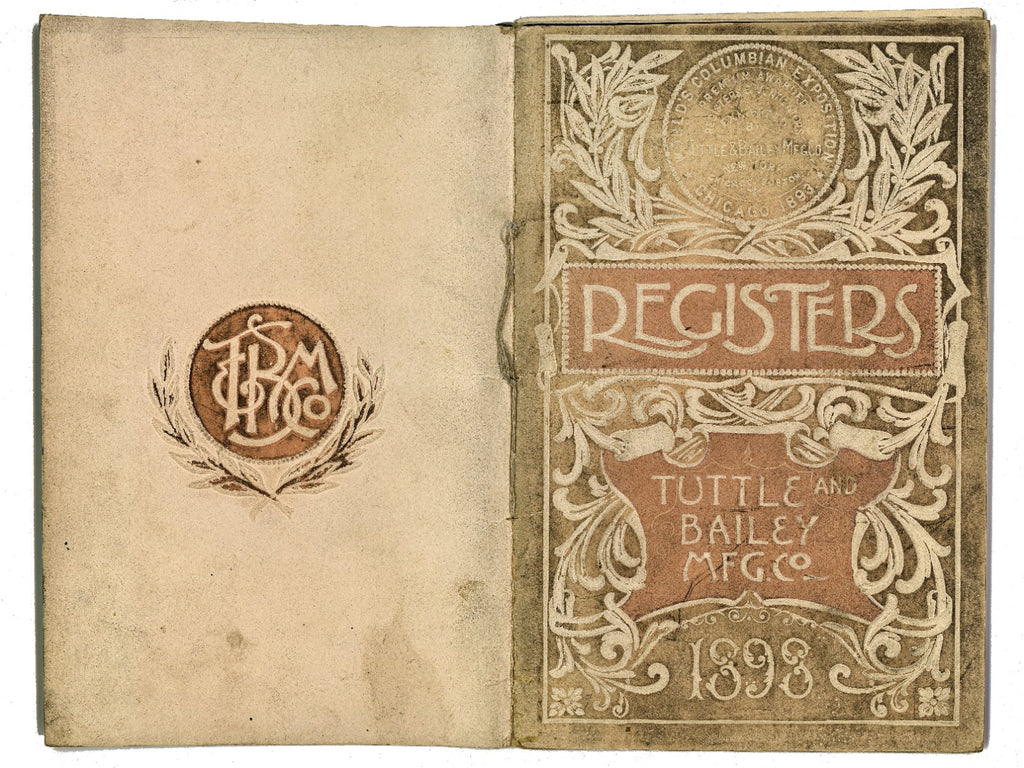 T&B M'F'G Co
WORLD'S COLUMBIAN EXPOSITION
PREMIUM AWARDED
TUTTLE & BAILEY MFG. CO.
NEW YORK
CHICAGO 1893
REGISTERS
TUTTLE AND
BAILEY
MFG. CO.
1898